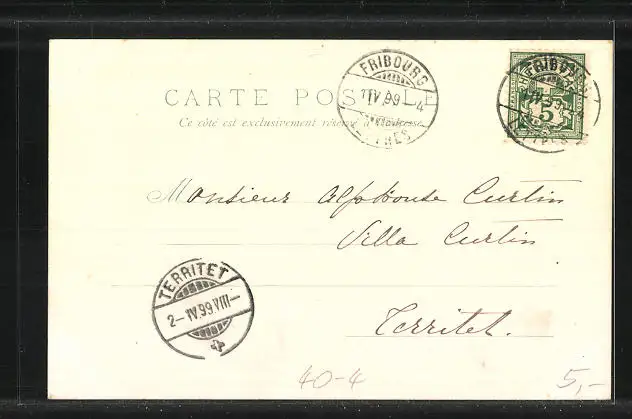 CARTE POSTALE
Ce côté est exclusivement réservé à l'adresse
FRIBOURG
1 IV 99 4
LETTRES
FRIBOURG
IV 99
5
LETTRES
Monsieur Alphonse Curtin
Villa Curtin
Territet.
TERRITET
2-IV.99.VIII-
40-4
5,-